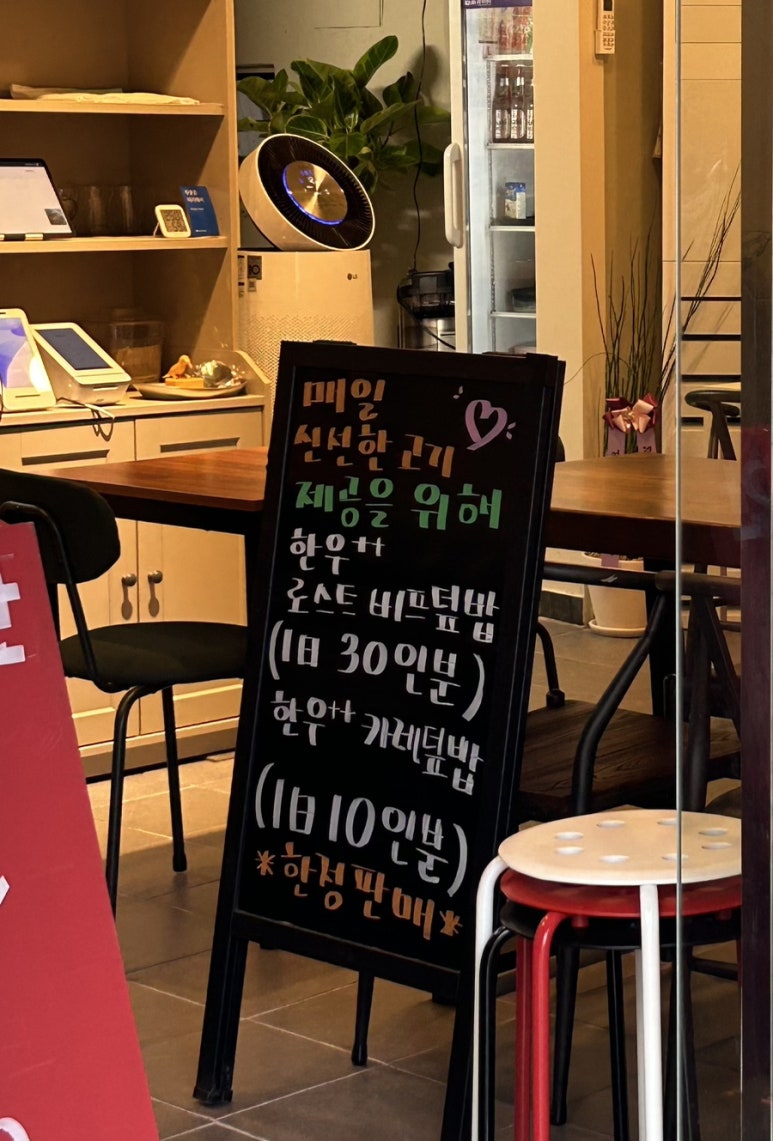 매일
신선한 고기
제공을 위해
한우++
로스트 비프덮밥
(1日 30인분)
한우++ 카레덮밥
(1日 10인분)
*한정판매*
LG